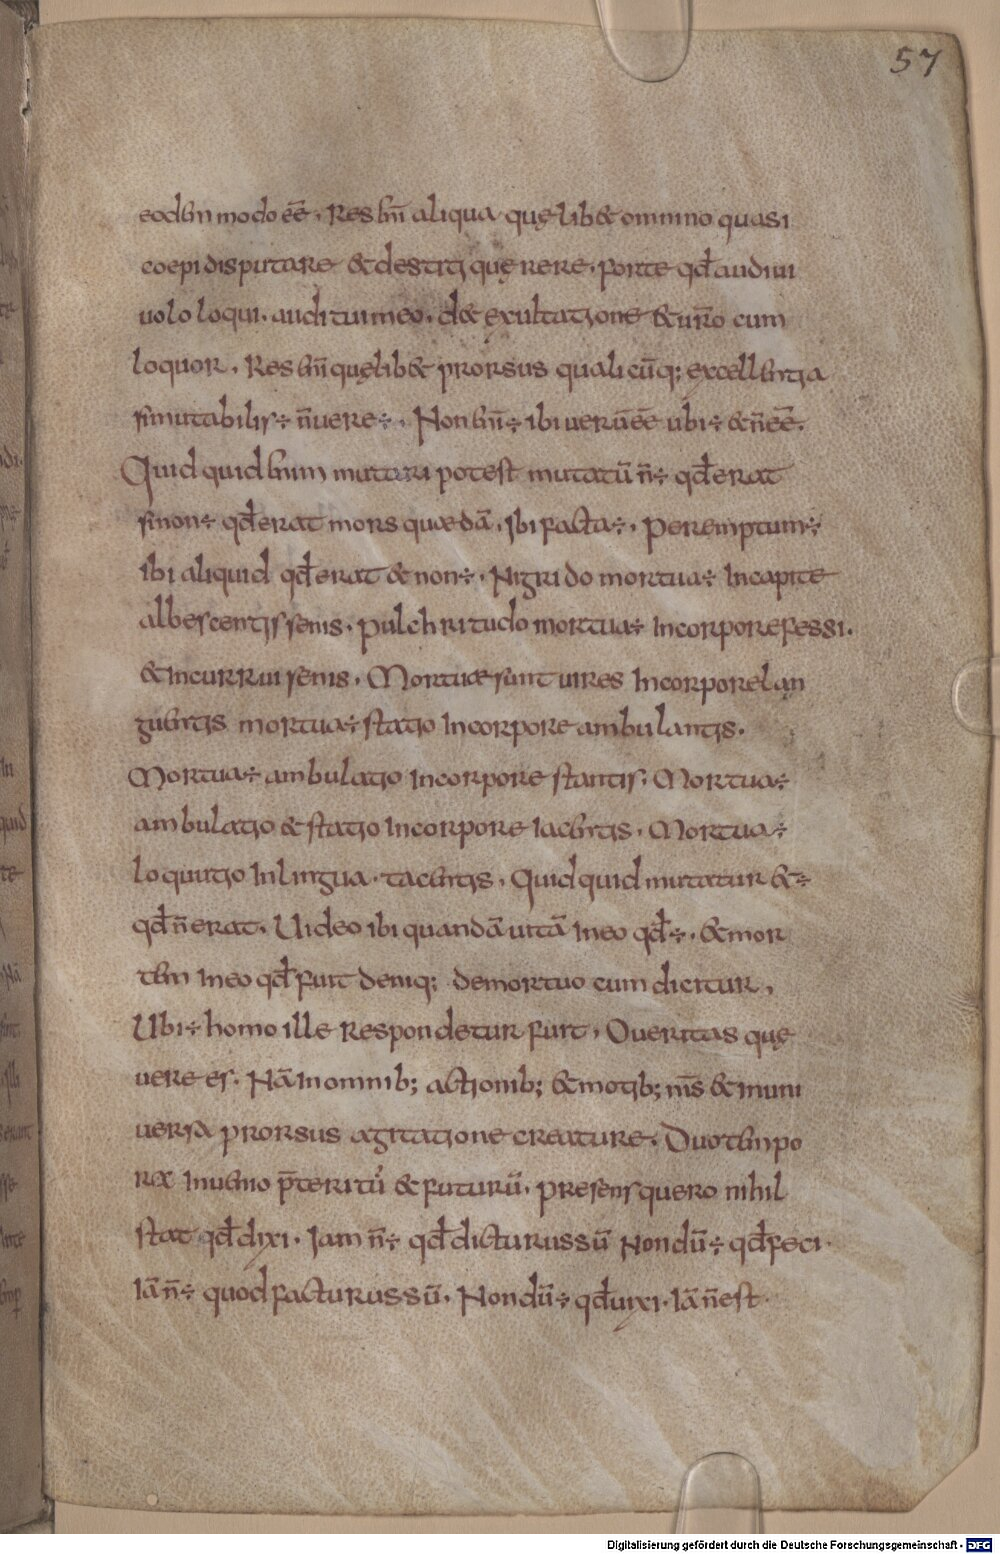 57
eodem modo eē. Res enī aliqua quęlib& omnino quasi
coepi disputare & destiti quęrere. forte qđ audiui
uolo loqui. auditui meo. d& exultatione & ur̄o cum
loquor. Res enī quęlib& prorsus qualicūq; excellentia
simutabilis÷ n̄uere÷. Non enī÷ ibi uerū eē ubi÷ & n̄ eē.
Quidquid enim mutari potest mutatū n̄÷ qđ erat
sinon÷ qđ erat mors quædā. ibi facta÷. Peremptum÷
ibi aliquid qđ erat & non÷. Nigrido mortua÷ Incapite
albescentis senis. pulchritudo mortua÷ Incorpore fessi.
& Incurrui senis. Mortuæ sunt uires Incorpore lan
guentis mortua÷ statio Incorpore ambulantis.
Mortua÷ ambulatio Incorpore stantis. Mortua÷
ambulatio & statio Incorpore Iacentis. Mortua÷
loquutio Inlingua. tacentis. Quidquid mutatur &÷
qđ n̄ erat. Uideo ibi quandā uitā Ineo qđ÷. & mor
tem Ineo qđ fuit deniq; demortuo cum dicitur,
Ubi÷ homo ille Respondetur fuit. O ueritas quę
uere es. Nā In omnib; actionib; & motib; n̄is & muni
uersa prorsus agitatione creature. Duo tempo
ra Inuenio p̄teritū & futurū. presens quero nihil
stat qđ dixi. Iam n̄÷ qđ dicturus sū Nondū÷ qđ feci.
Iā n̄÷ quod facturus sū. Nondū÷ qđ uixi. Iā n̄ est.
Digitalisierung gefördert durch die Deutsche Forschungsgemeinschaft - DFG